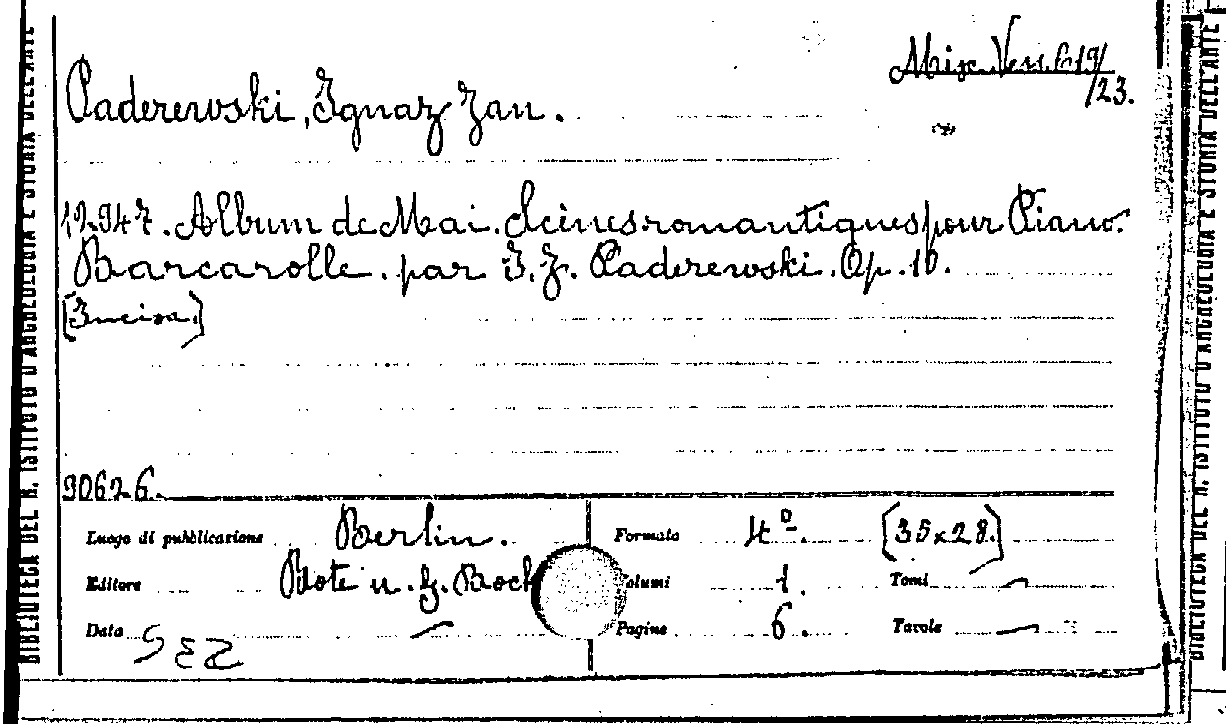 Misc. Ven. C 19/
/23.
Paderewski, Ignaz Jan.
12.947. Album de Mai. Scènes romantiques pour Piano.
Barcarolle. par I. J. Paderewski. Op. 10.
[Incisa.]
90626.
Luogo di pubblicazione Berlin. Formato 4º. [35x28.]
Editore Bote u. G. Bock Volumi 1. Tomi —
Data — Pagine 6. Tavole —
BIBLIOTECA DEL R. ISTITUTO D'ARCHEOLOGIA E STORIA DELL'ARTE
BIBLIOTECA DEL R. ISTITUTO D'ARCHEOLOGIA E STORIA DELL'ARTE